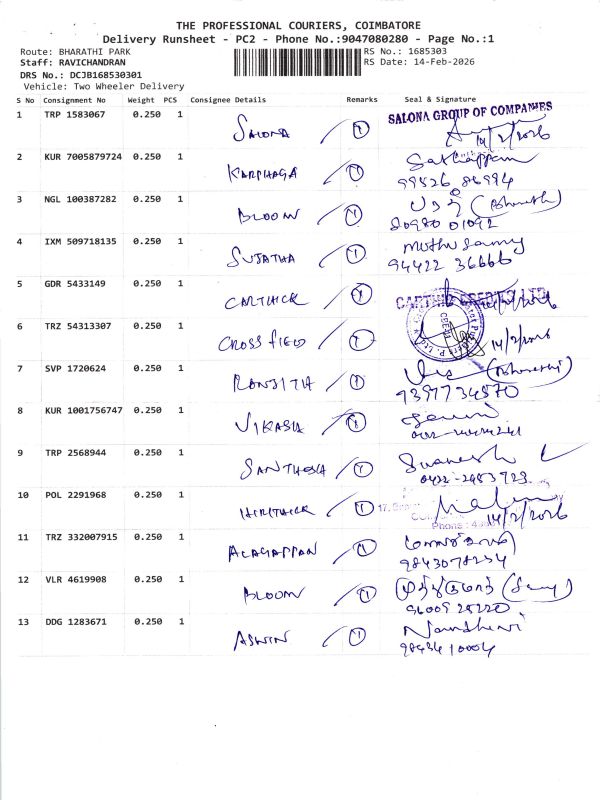 THE PROFESSIONAL COURIERS, COIMBATORE
Delivery Runsheet - PC2 - Phone No.:9047080280 - Page No.:1
Route: BHARATHI PARK RS No.: 1685303
Staff: RAVICHANDRAN RS Date: 14-Feb-2026
DRS No.: DCJB168530301
Vehicle: Two Wheeler Delivery
S No Consignment No Weight PCS Consignee Details Remarks Seal & Signature
1 TRP 1583067 0.250 1 SALONA 1 SALONA GROUP OF COMPANIES
14/2/2026
2 KUR 7005879724 0.250 1 KARPHAGA 1 Sathappan
3 NGL 100387282 0.250 1 BLOOM 1
80980 01092
4 IXM 509718135 0.250 1 SUJATHA 1 Muthu Samy
94422 36666
5 GDR 5433149 0.250 1 CARTHICK 1
6 TRZ 54313307 0.250 1 CROSS FIELD 1 14/2/2026
7 SVP 1720624 0.250 1 RANJITH 1
8 KUR 1001756747 0.250 1 VIKASH 1
9 TRP 2568944 0.250 1 SANTHOSH 1
0422-2483723
10 POL 2291968 0.250 1 HIRTHICK 1
14/2/2026
11 TRZ 332007915 0.250 1 ALAGAPPAN 1
9843078234
12 VLR 4619908 0.250 1 BLOOM 1
13 DDG 1283671 0.250 1 ASWIN 1